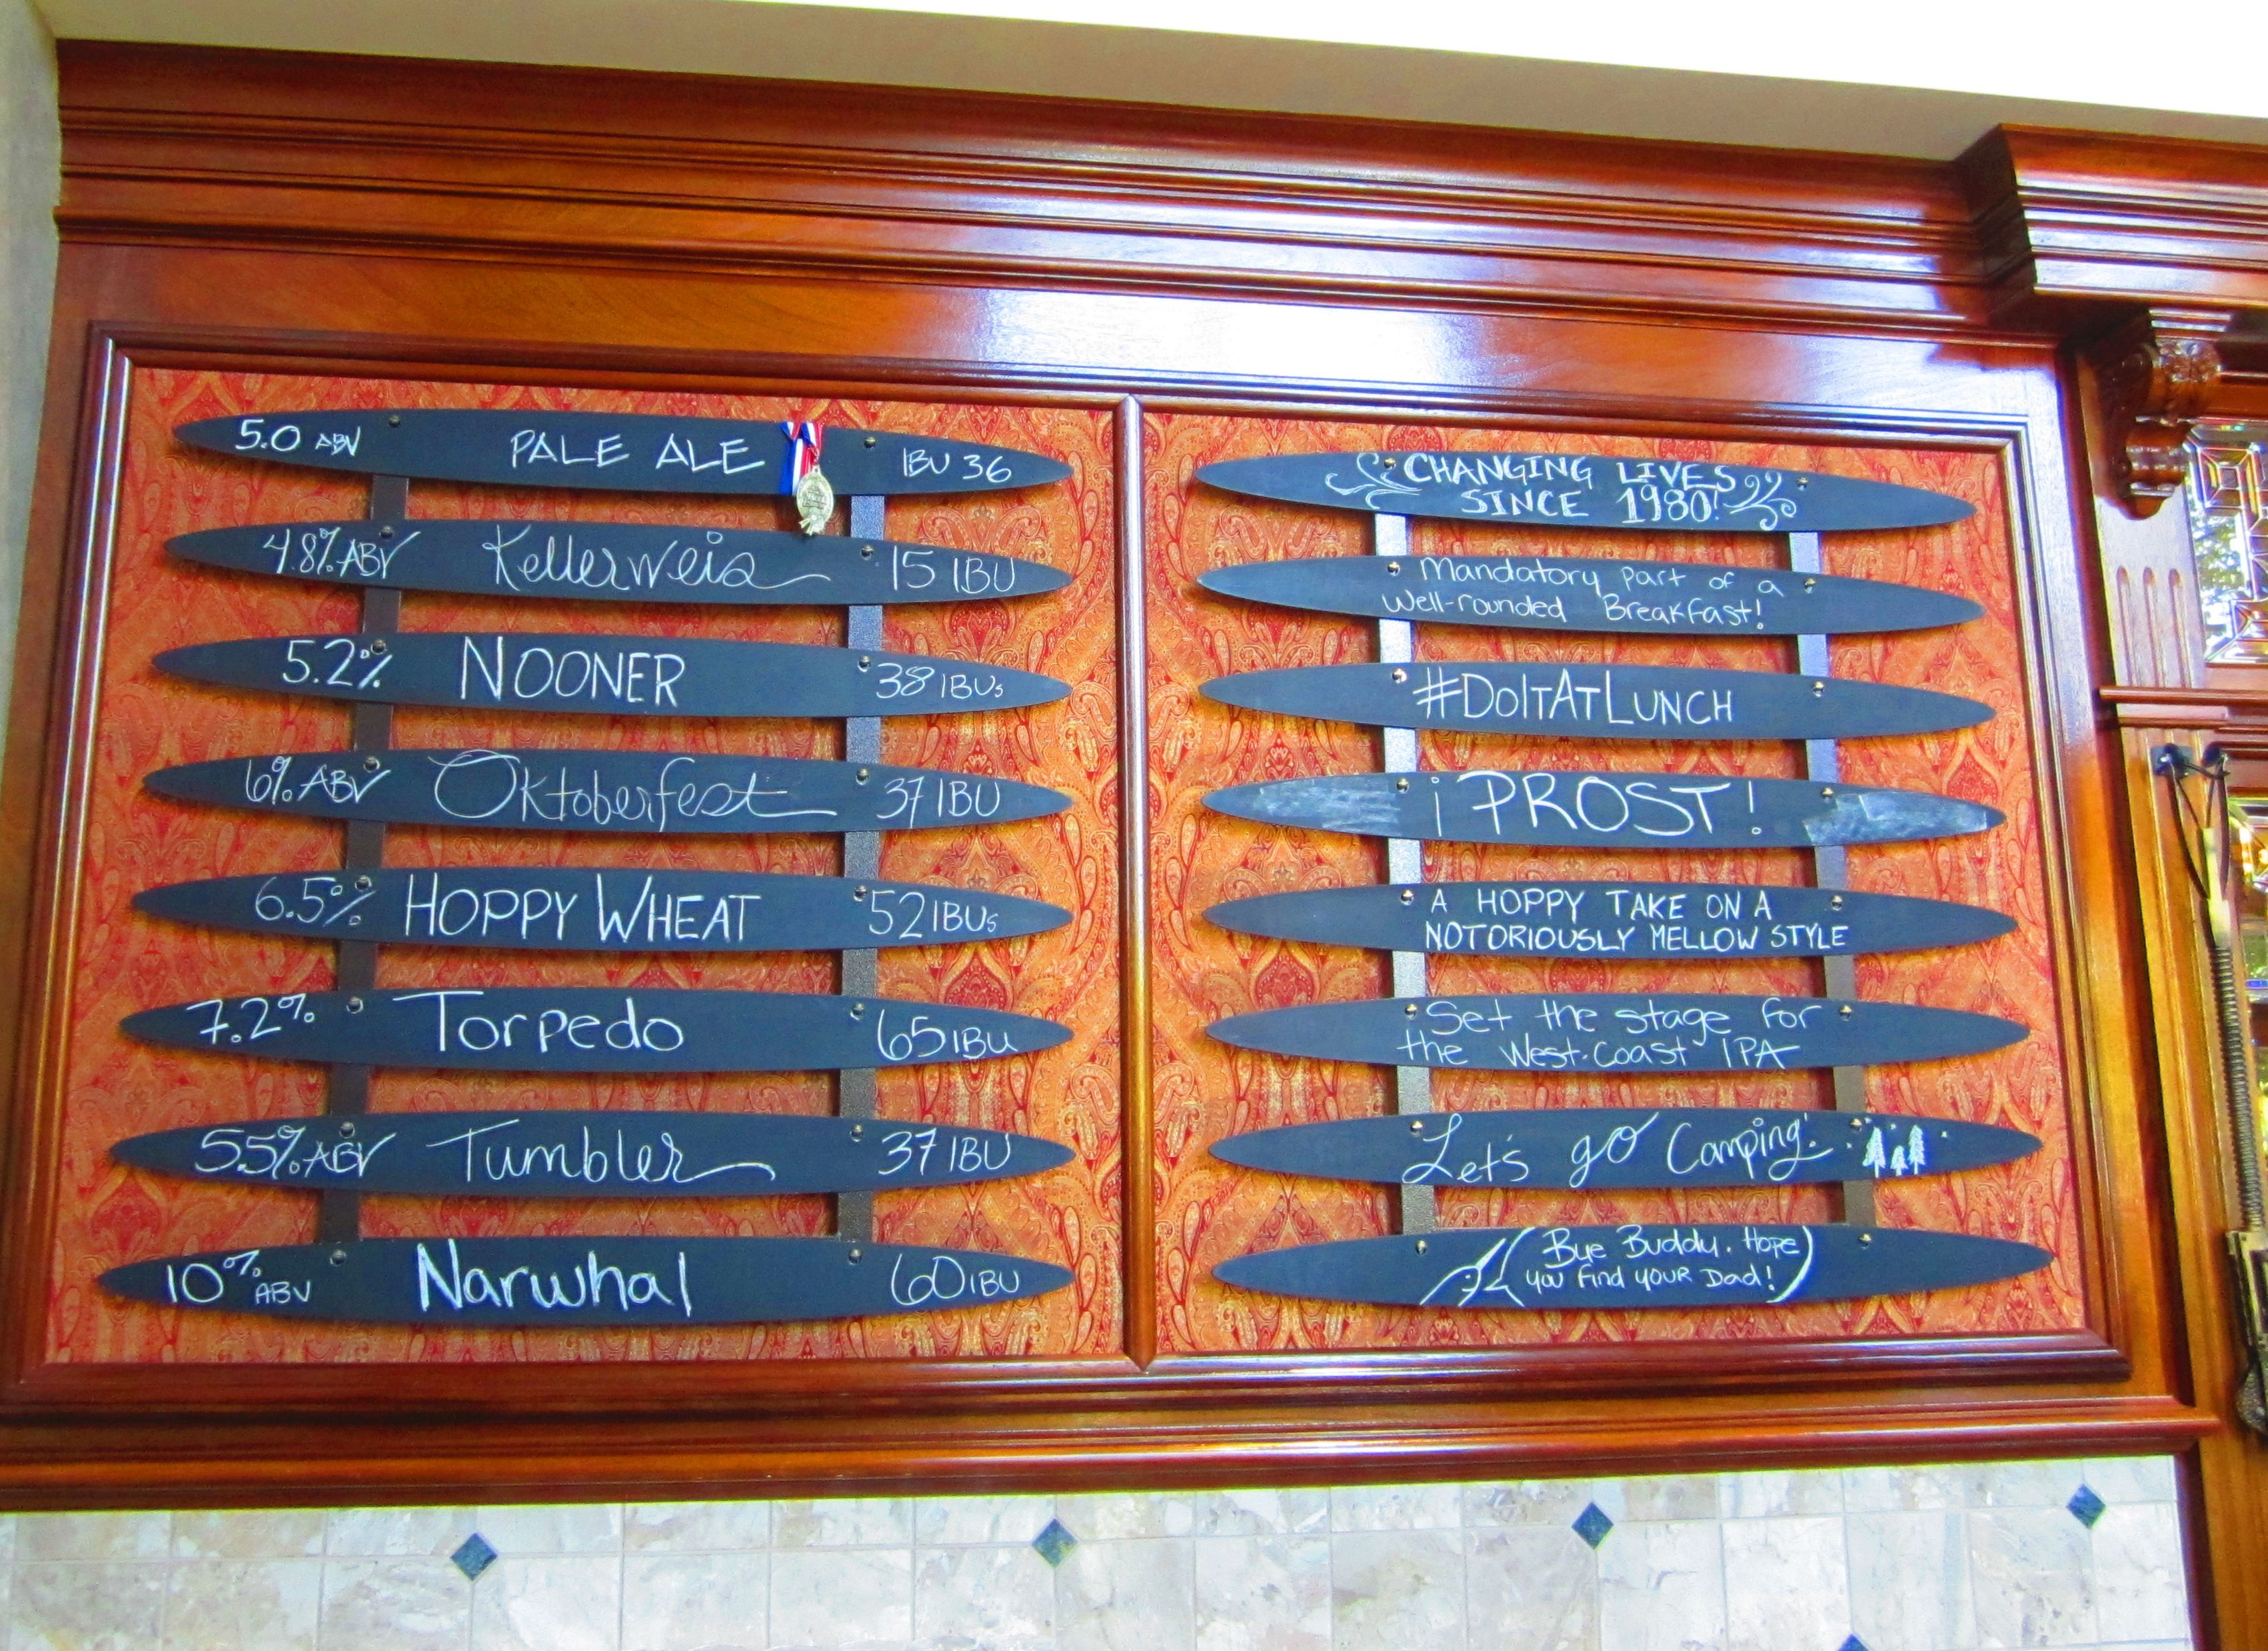 5.0 ABV PALE ALE IBU 36
4.8% ABV Kellerweis 15 IBU
5.2% NOONER 38 IBUs
6% ABV Oktoberfest 37 IBU
6.5% HOPPY WHEAT 52 IBUs
7.2% Torpedo 65 IBU
5.5% ABV Tumbler 37 IBU
10% ABV Narwhal 60 IBU
CHANGING LIVES
SINCE 1980!
Mandatory part of a
Well-rounded Breakfast!
#DOITATLUNCH
¡PROST!
A HOPPY TAKE ON A
NOTORIOUSLY MELLOW STYLE
Set the stage for
the West-Coast IPA
Let's go Camping!
Bye Buddy. Hope
you find your Dad!